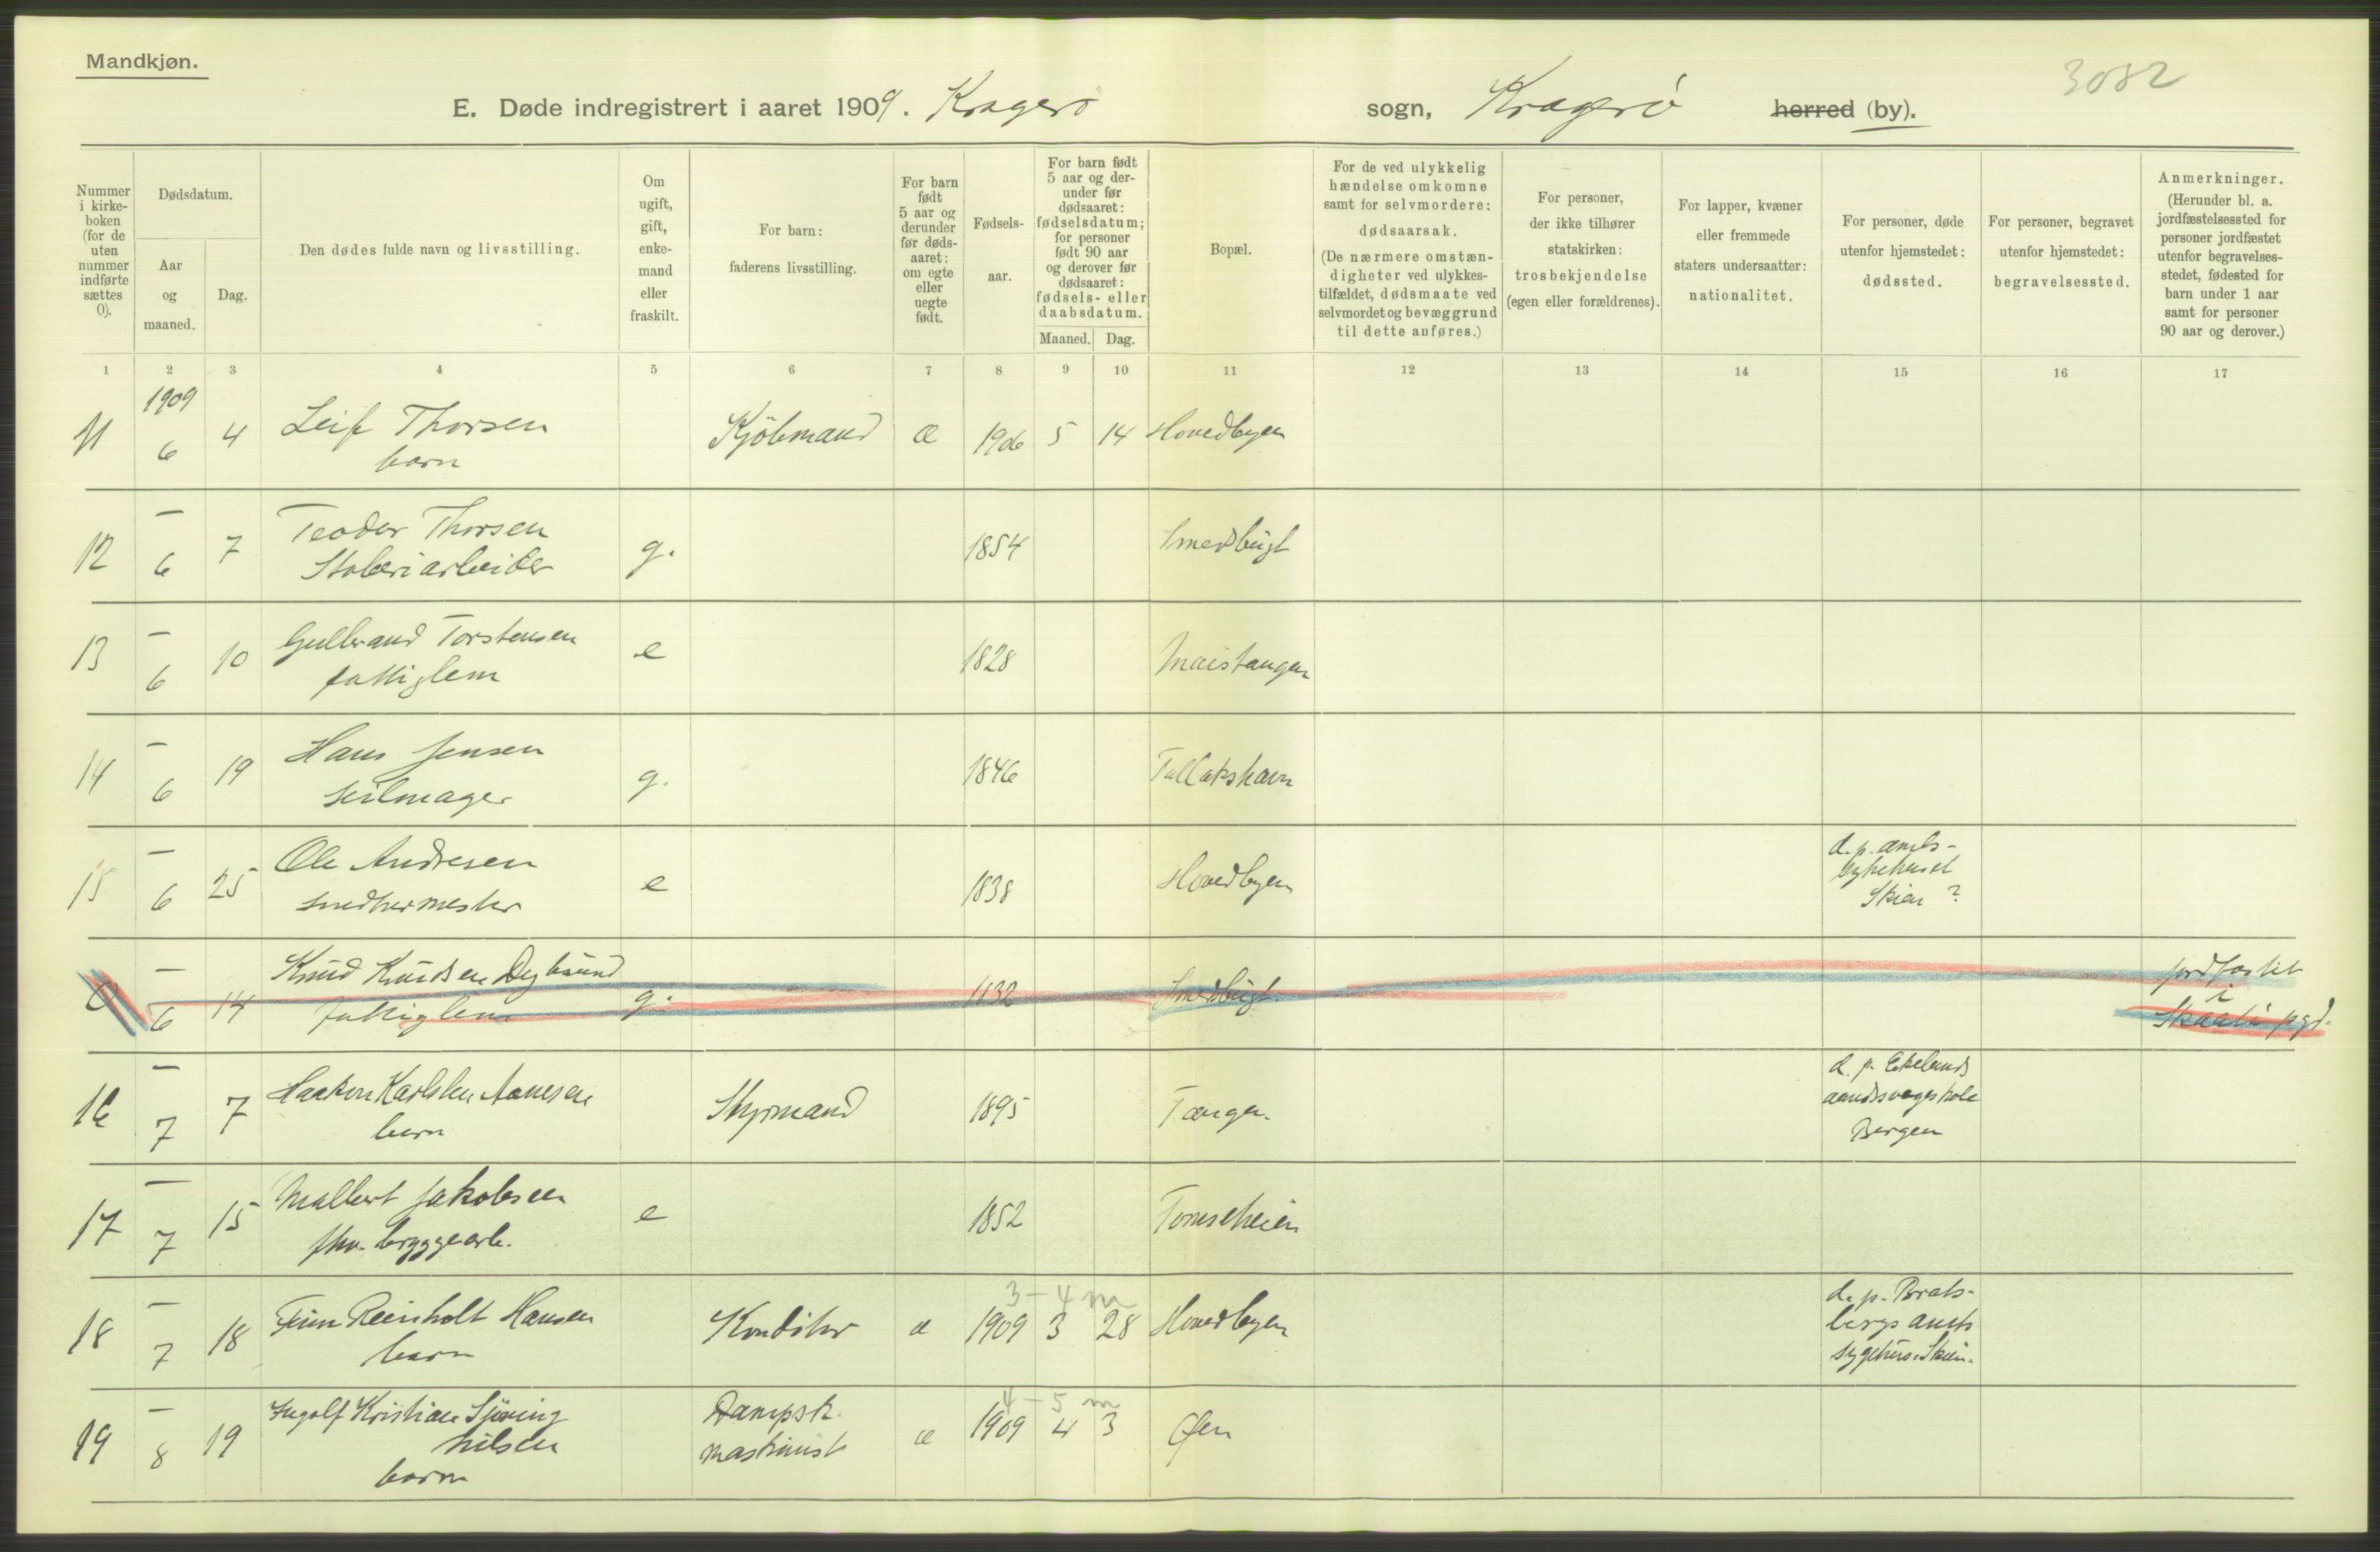 Mandkjøn.
3082
E. Døde indregistrert i aaret 1909. Kragerø sogn, Kragerø herred (by).
Nummer i kirkeboken (for de uten nummer indførte sættes 0).
Dødsdatum.
Aar og maaned.
Dag.
Den dødes fulde navn og livsstilling.
Om ugift, gift, enkemand eller fraskilt.
For barn: faderens livsstilling.
For barn født 5 aar og derunder før dødsaaret: om egte eller uegte født.
Fødselsaar.
For barn født 5 aar og derunder før dødsaaret: fødselsdatum; for personer født 90 aar og derover før dødsaaret: fødsels- eller daabsdatum.
Maaned. Dag.
Bopæl.
For de ved ulykkelig hændelse omkomne samt for selvmordere: dødsaarsak. (De nærmere omstændigheter ved ulykkestilfældet, dødsmaate ved selvmordet og bevæggrund til dette anføres.)
For personer, der ikke tilhører statskirken: trosbekjendelse (egen eller forældrenes).
For lapper, kvæner eller fremmede staters undersaatter: nationalitet.
For personer, døde utenfor hjemstedet: dødssted.
For personer, begravet utenfor hjemstedet: begravelsessted.
Anmerkninger. (Herunder bl. a. jordfæstelsessted for personer jordfæstet utenfor begravelsesstedet, fødested for barn under 1 aar samt for personer 90 aar og derover.)
1 2 3 4 5 6 7 8 9 10 11 12 13 14 15 16 17
1909
11 6 4 Leif Thorsen Kjøbmand æ 1906 5 14 Hovedbyen
barn
12 – 6 7 Teodor Thorsen g. 1854 Smedbugt
13 – 6 10 Gulbrand Torstensen e 1828
fattiglem
14 – 6 19 Hans Jensen g. 1846 Tallakshavn
seilmager
15 – 6 25 Ole Andresen e 1838 Hovedbyen d. p. amts-
snedkermester sykehuset
Skien ?
0 – 6 14 Knud Knudsen g. 1832 Smedbugt jordfæstet
fattiglem i
pgd.
16 – 7 7 Haakon Karlsen Aanesen Styrmand 1895 Tangen d. p. Ekelunds
barn
Bergen
17 – 7 15 Mallert Jakobsen e 1852
fhv. bryggearb.
3-4 m
18 – 7 18 Finn Reinholt Hansen Konditor æ 1909 3 28 Hovedbyen d. p. Brats-
barn bergs amts
sygehus. Skien.
4-5 m
19 – 8 19 Ingolf Kristian Dampsk. æ 1909 4 3 Øen
Nilsen maskinist
barn